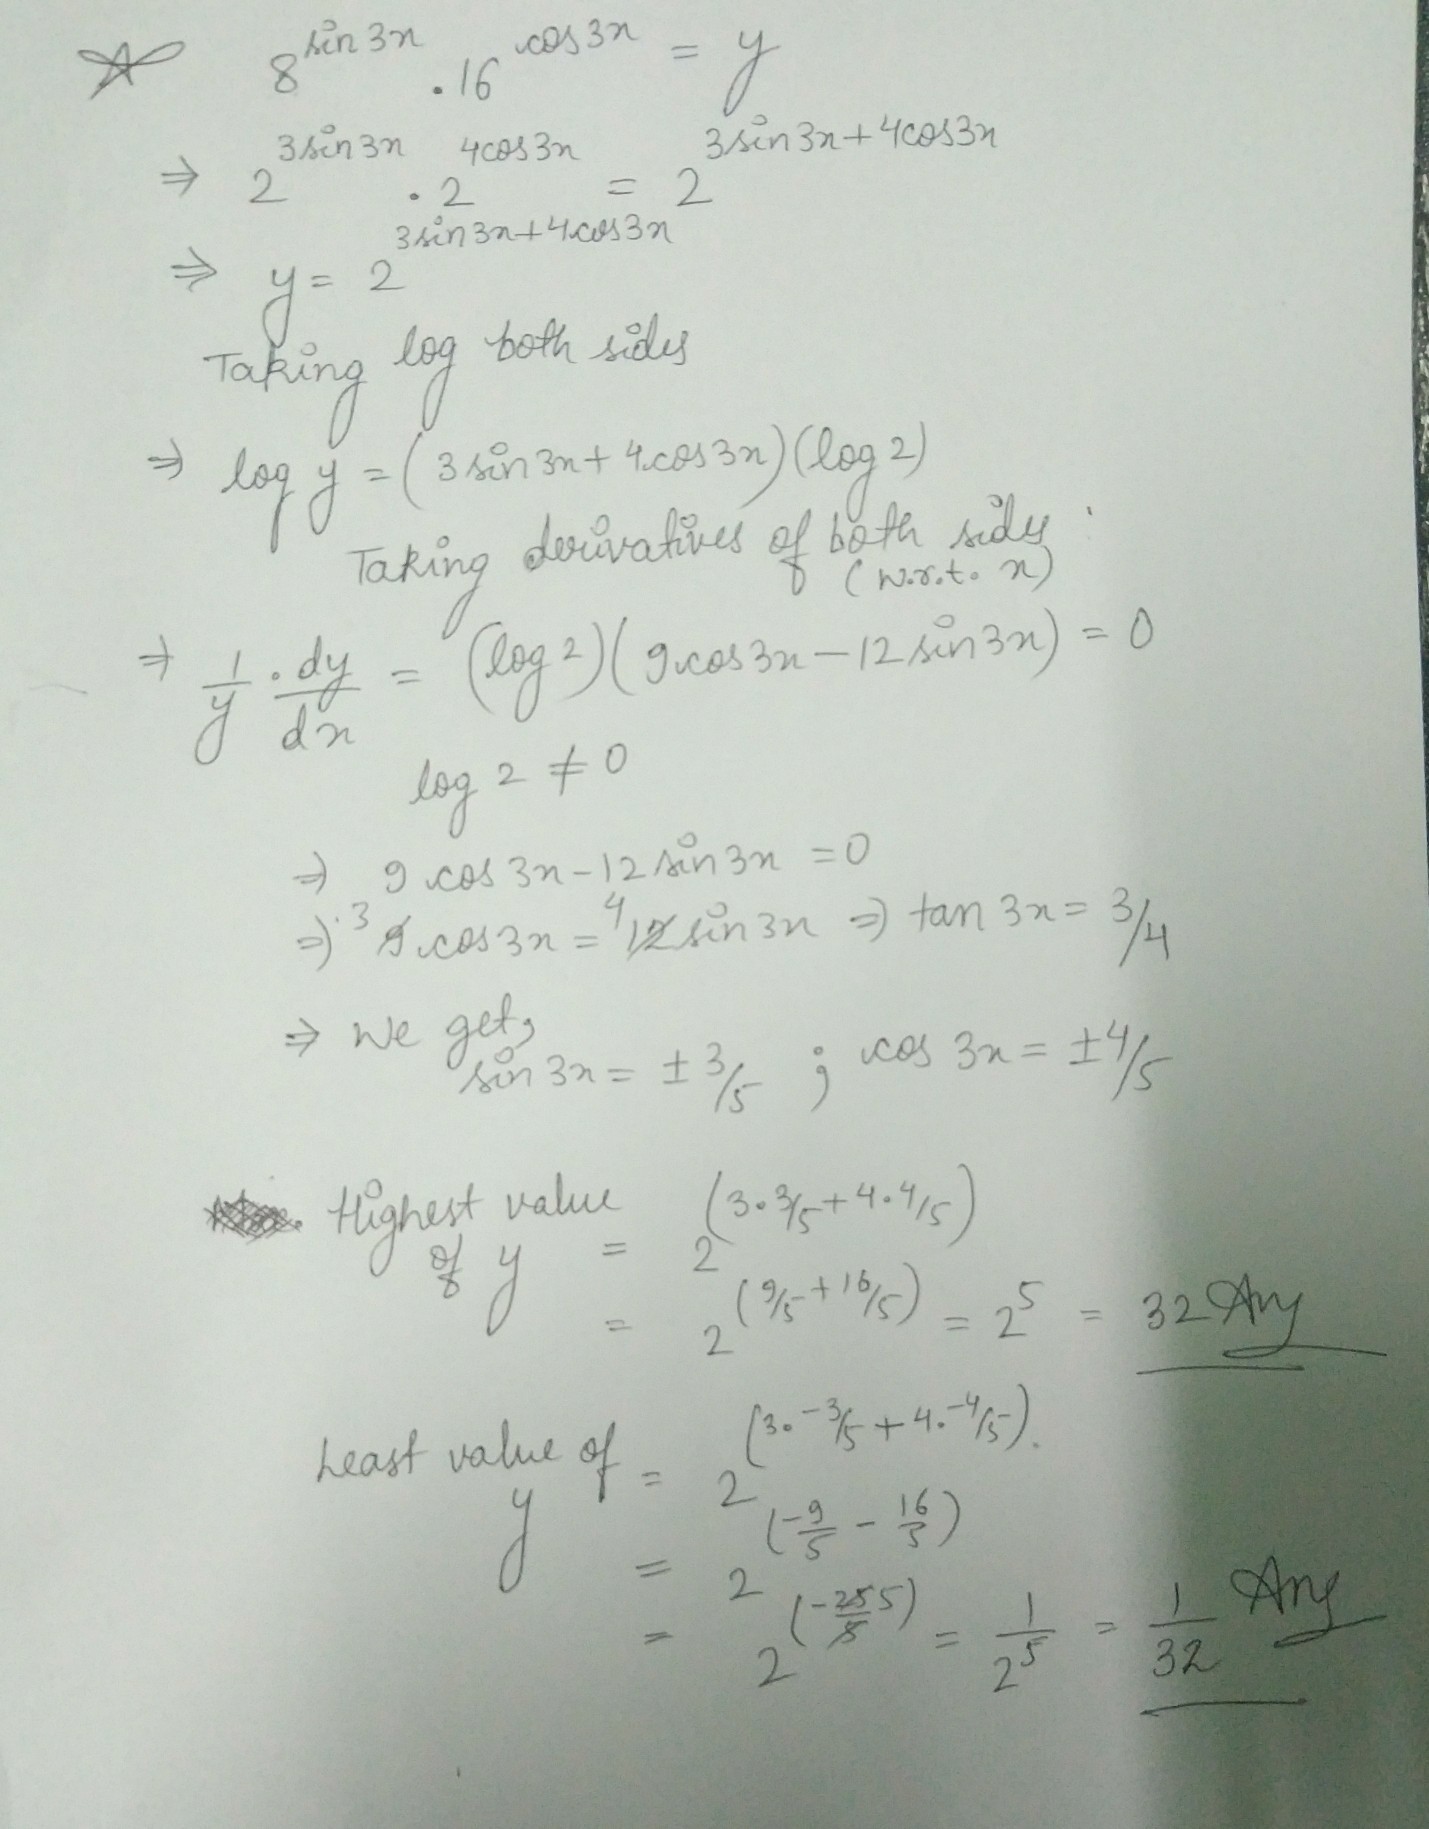 8^(sin 3x) . 16^(cos 3x) = y
⇒ 2^(3sin 3x) . 2^(4cos 3x) = 2^(3sin 3x + 4cos 3x)
⇒ y = 2^(3sin 3x + 4cos 3x)
Taking log both sides
⇒ log y = (3 sin 3x + 4 cos 3x)(log 2)
Taking derivatives of both sides
(w.r.t. x)
⇒ 1/y . dy/dx = (log 2)(9 cos 3x − 12 sin 3x) = 0
log 2 ≠ 0
⇒ 9 cos 3x − 12 sin 3x = 0
⇒ 3 9 cos 3x = 4 12 sin 3x ⇒ tan 3x = 3/4
⇒ We get,
sin 3x = ± 3/5 ; cos 3x = ± 4/5
Highest value of y = 2^(3.3/5 + 4.4/5)
= 2^(9/5 + 16/5) = 2^5 = 32 Ans
Least value of y = 2^(3.−3/5 + 4.−4/5).
= 2^(−9/5 − 16/5)
= 2^(−25/5 5) = 1/2^5 = 1/32 Ans